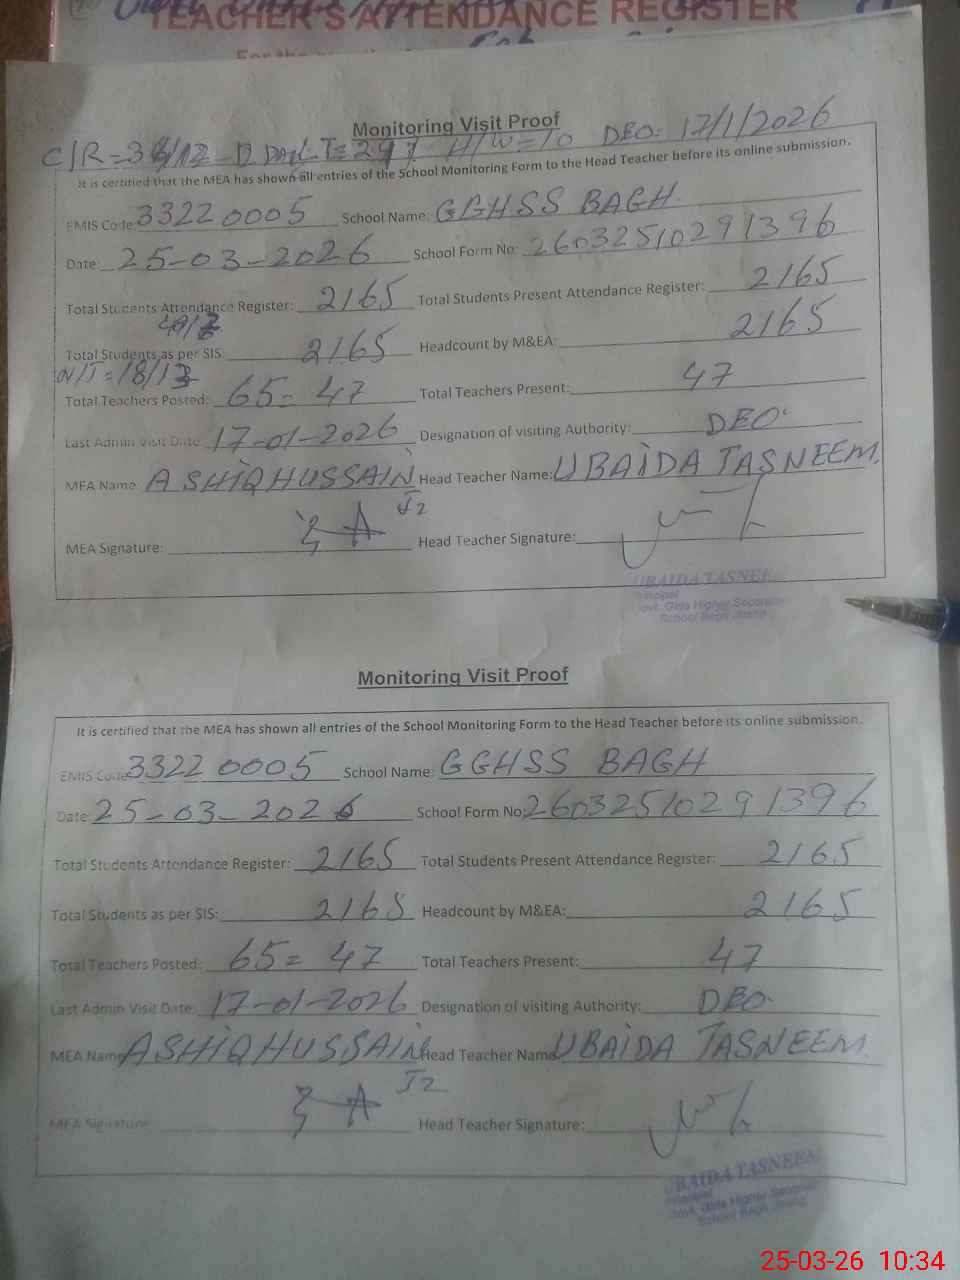 TEACHER'S ATTENDANCE REGISTER
For the
Monitoring Visit Proof
DEO. 17/1/2026
C/R = H/W = 10
It is certified that the MEA has shown all entries of the School Monitoring Form to the Head Teacher before its online submission.
EMIS Code: 33220005 School Name: GGHSS BAGH.
Date: 25-03-2026 School Form No: 26032510291396
Total Students Attendance Register: 2165 Total Students Present Attendance Register: 2165
Total Students as per SIS: 2165 Headcount by M&EA: 2165
N/T = 18/13
Total Teachers Posted: 65 = 47 Total Teachers Present: 47
Last Admin Visit Date: 17-01-2026 Designation of visiting Authority: DEO.
MEA Name: ASHIQ HUSSAIN Head Teacher Name: UBAIDA TASNEEM.
J2
MEA Signature: Head Teacher Signature:
UBAIDA TASNEEM
Principal
Govt. Girls Higher Secondary
School Bagh Jhang
Monitoring Visit Proof
It is certified that the MEA has shown all entries of the School Monitoring Form to the Head Teacher before its online submission.
EMIS Code: 33220005 School Name: GGHSS BAGH
Date: 25-03-2026 School Form No: 26032510291396
Total Students Attendance Register: 2165 Total Students Present Attendance Register: 2165
Total Students as per SIS: 2165 Headcount by M&EA: 2165
Total Teachers Posted: 65 = 47 Total Teachers Present: 47
Last Admin Visit Date: 17-01-2026 Designation of visiting Authority: DEO.
MEA Name: ASHIQ HUSSAIN Head Teacher Name: UBAIDA TASNEEM.
J2
MEA Signature: Head Teacher Signature:
UBAIDA TASNEEM
Principal
Govt. Girls Higher Secondary
School Bagh Jhang
25-03-26 10:34